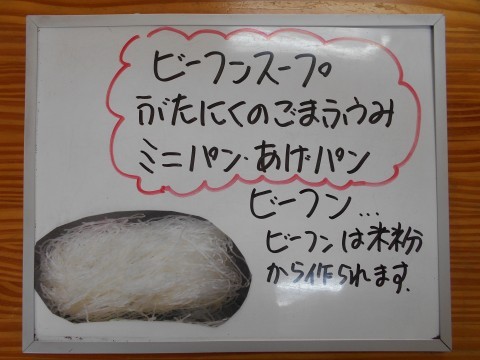 ビーフンスープ
ぶたにくのごまふうみ
ミニパン・あげパン
ビーフン…
ビーフンは米粉
から作られます.